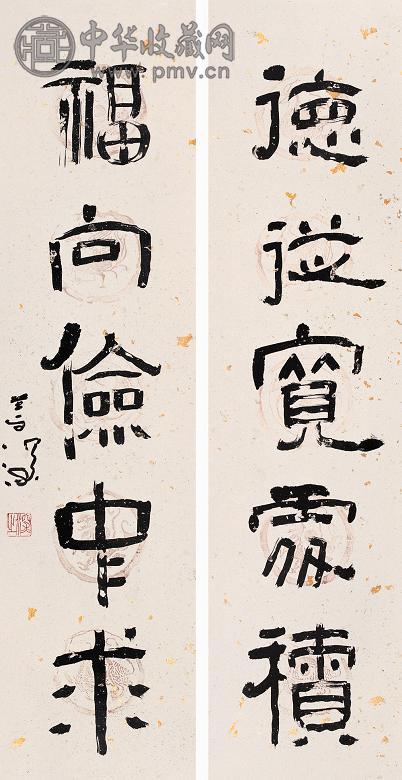 中华收藏网
www.pmv.cn
德從寬處積
福向儉中求